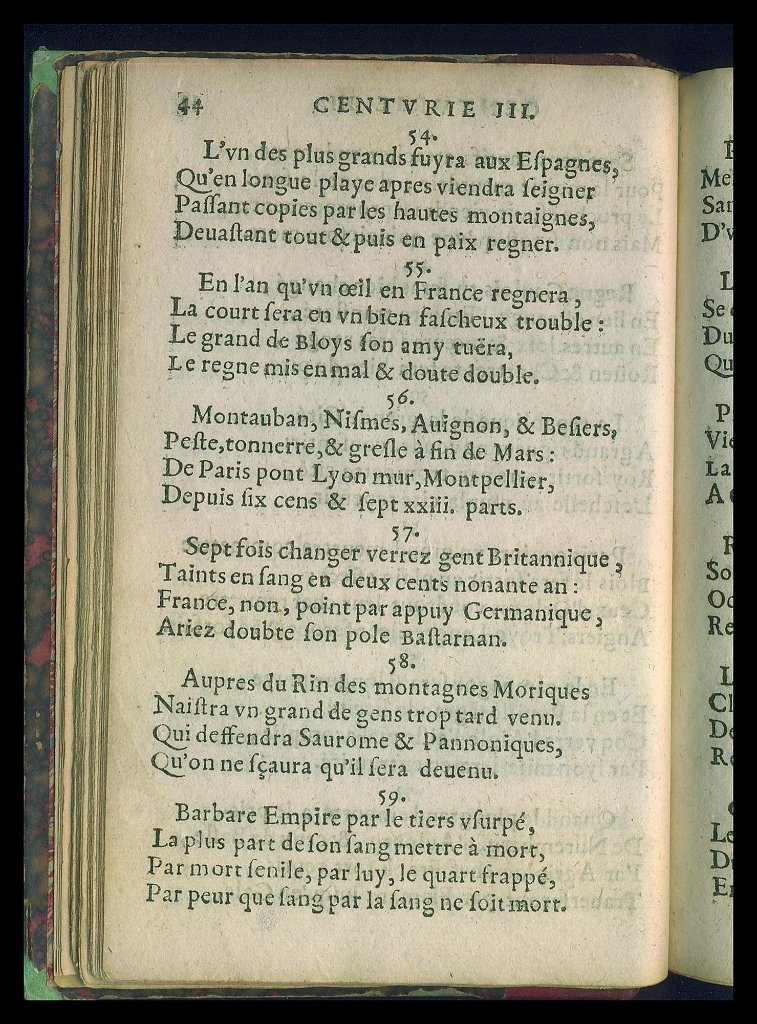 44 CENTVRIE III.
54.
L'vn des plus grands fuyra aux Eſpagnes,
Qu'en longue playe apres viendra ſeigner
Paſſant copies par les hautes montaignes,
Deuaſtant tout & puis en paix regner.
55.
En l'an qu'vn œil en France regnera,
La court ſera en vn bien faſcheux trouble:
Le grand de Bloys ſon amy tuëra,
Le regne mis en mal & doute double.
56.
Montauban, Niſmes, Auignon, & Beſiers,
Peſte, tonnerre, & greſle à fin de Mars:
De Paris pont Lyon mur, Montpellier,
Depuis ſix cens & ſept xxiii. parts.
57.
Sept fois changer verrez gent Britannique,
Taints en ſang en deux cents nonante an:
France, non, point par appuy Germanique,
Ariez doubte ſon pole Baſtarnan.
58.
Aupres du Rin des montagnes Moriques
Naiſtra vn grand de gens trop tard venu.
Qui deffendra Saurome & Pannoniques,
Qu'on ne ſçaura qu'il ſera deuenu.
59.
Barbare Empire par le tiers vſurpé,
La plus part de ſon ſang mettre à mort,
Par mort ſenile, par luy, le quart frappé,
Par peur que ſang par la ſang ne ſoit mort.